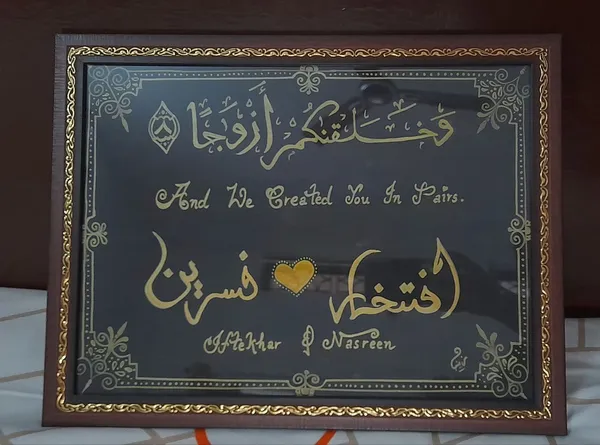 وَخَلَقْنَٰكُمْ أَزْوَٰجًا ٨
And We Created You In Pairs.
افتخار نسرين
Iftekhar & Nasreen